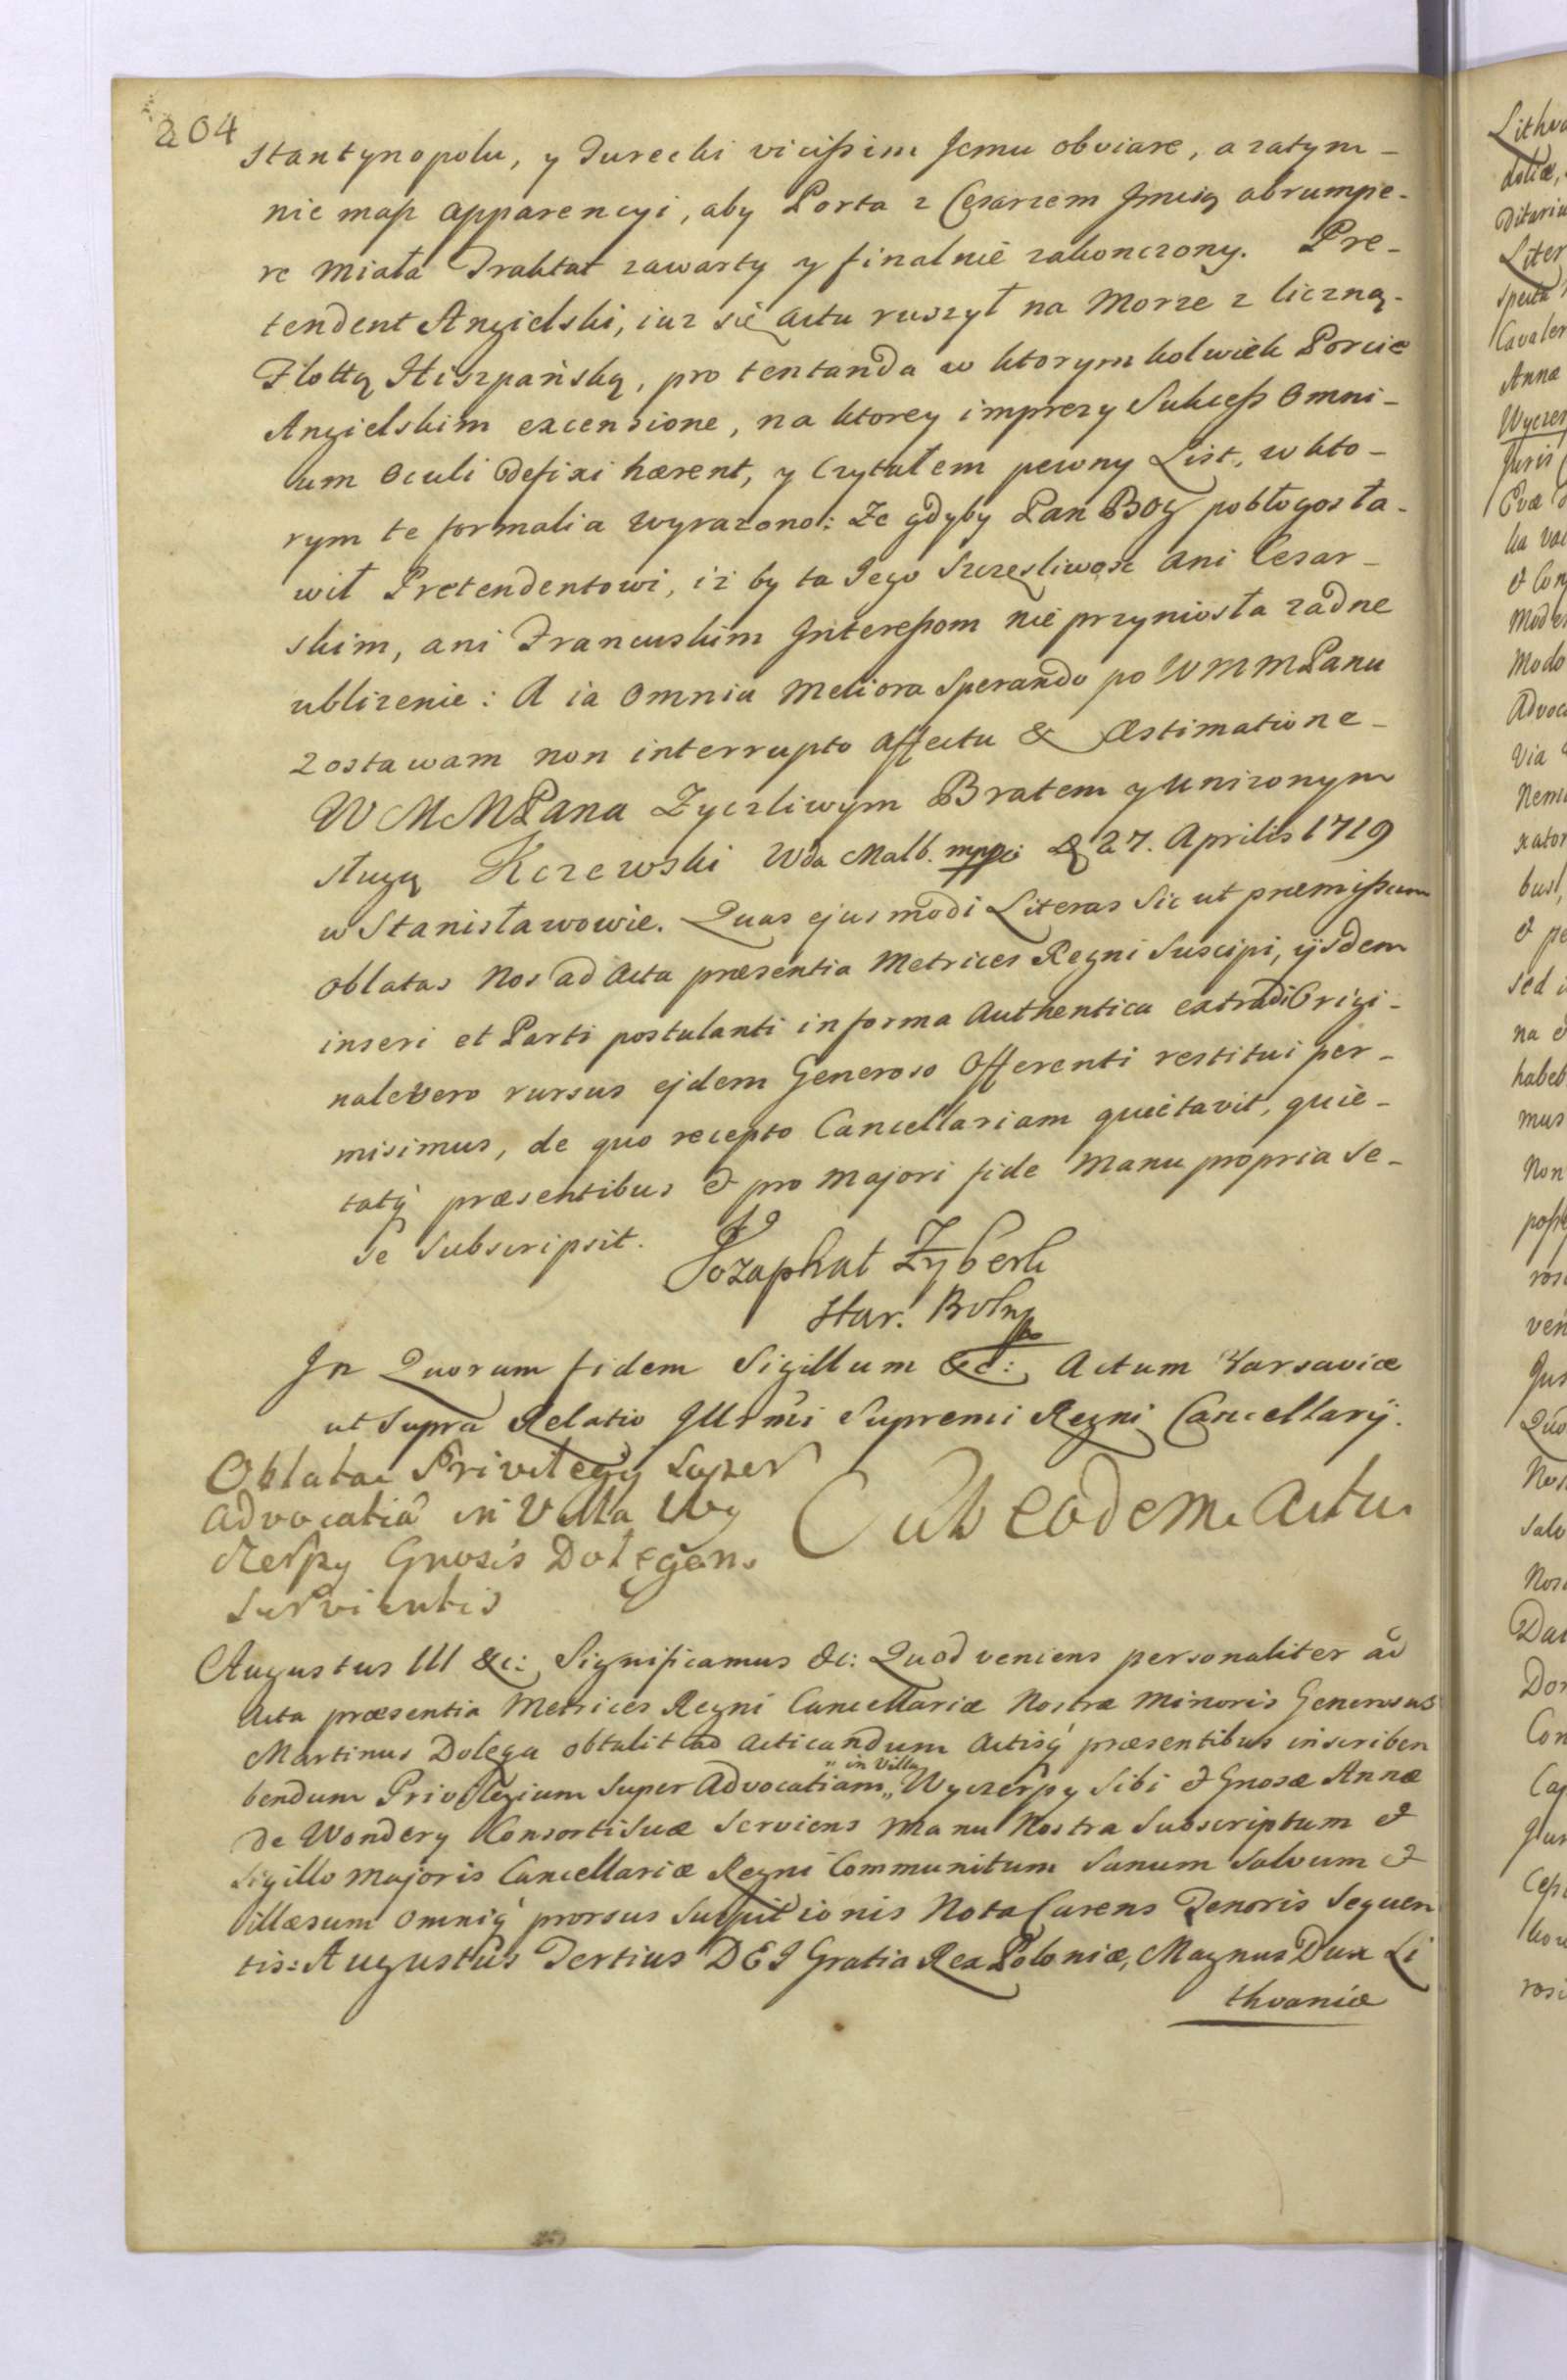 204
Stantynopolu, y Turecki vicißim Jemu obviare, a zatym-
nie maß apparencyi, aby Porta z Cesarzem Jmcią abrumpe-
re miała Traktat zawarty y finalnie zakonczony. Pre-
tendent Angielski, iuz się actu ruszył na Morze z liczną-
Flottą Hiszpańską, pro tentanda w ktorymkolwiek Porcie
Angielskim excensione, na ktorey imprezy Sukceß Omni-
um Oculi defixi hærent, y Czytałem pewny List, w kto-
rym te formalia wyrazono: Ze gdyby Pan Bog pobłogosła-
wił Pretendentowi, iż by ta Jego Szczęsliwosc ani Cesar-
skim, ani Francuskim Intereßom nie przyniosła zadne
ublizenie: A ia Omnia Meliora Sperando po WMMPanu
zostawam non interrupto affectu & Æstimatione-
WMMPana Zyczliwym Bratem y Unizonym
sługą Kczewski Wda Malb. mpp D 27. Aprilis 1719
w Stanisławowie. Quas ejusmodi Literas Sic ut præmißum
oblatas Nos ad Acta præsentia Metrices Regni Suscipi, ijsdem
inseri et Parti postulanti in forma Authentica extradi Origi-
nale vero rursus ejdem Generoso Offerenti restitui per-
misimus, de quo recepto Cancellariam quietavit, quie-
tatq́ præsentibus & pro majori fide Manu propria Se-
Se Subscripsit.
Jozaphat Zyberk
Star. Boln
In Quorum fidem Sigillum &c: Actum Varsaviæ
ut Supra Relatio Illrmi Supremi Regni Cancellarij.
Oblatae Privilegÿ Super
advocatiā in Villa Wy
czerpy Gnosis Dołęgom
Servientis
Sub eodem Actu
Augustus III &c: Significamus &c: Quod veniens personaliter ad
Acta præsentia Metrices Regni Cancellariæ Nostræ Minoris Generosus
Martinus Dolęga obtulit ad Acticandum Actisq́ præsentibus inscriben
bendum Privilegium Super Advocatiam „ in Villa „ Wyczerpy Sibi & Gnosæ Annæ
De Wondery Consorti Suæ Serviens Manu Nostra Subscriptum &
Sigillo Majoris Cancellariæ Regni Communitum Sanum Salvum &
illæsum Omniq́ prorsus Suspitionis Nota Carens Tenoris Sequen
tis: Augustus Tertius DEI Gratia Rex Poloniæ, Magnus Dux Li
thvaniæ